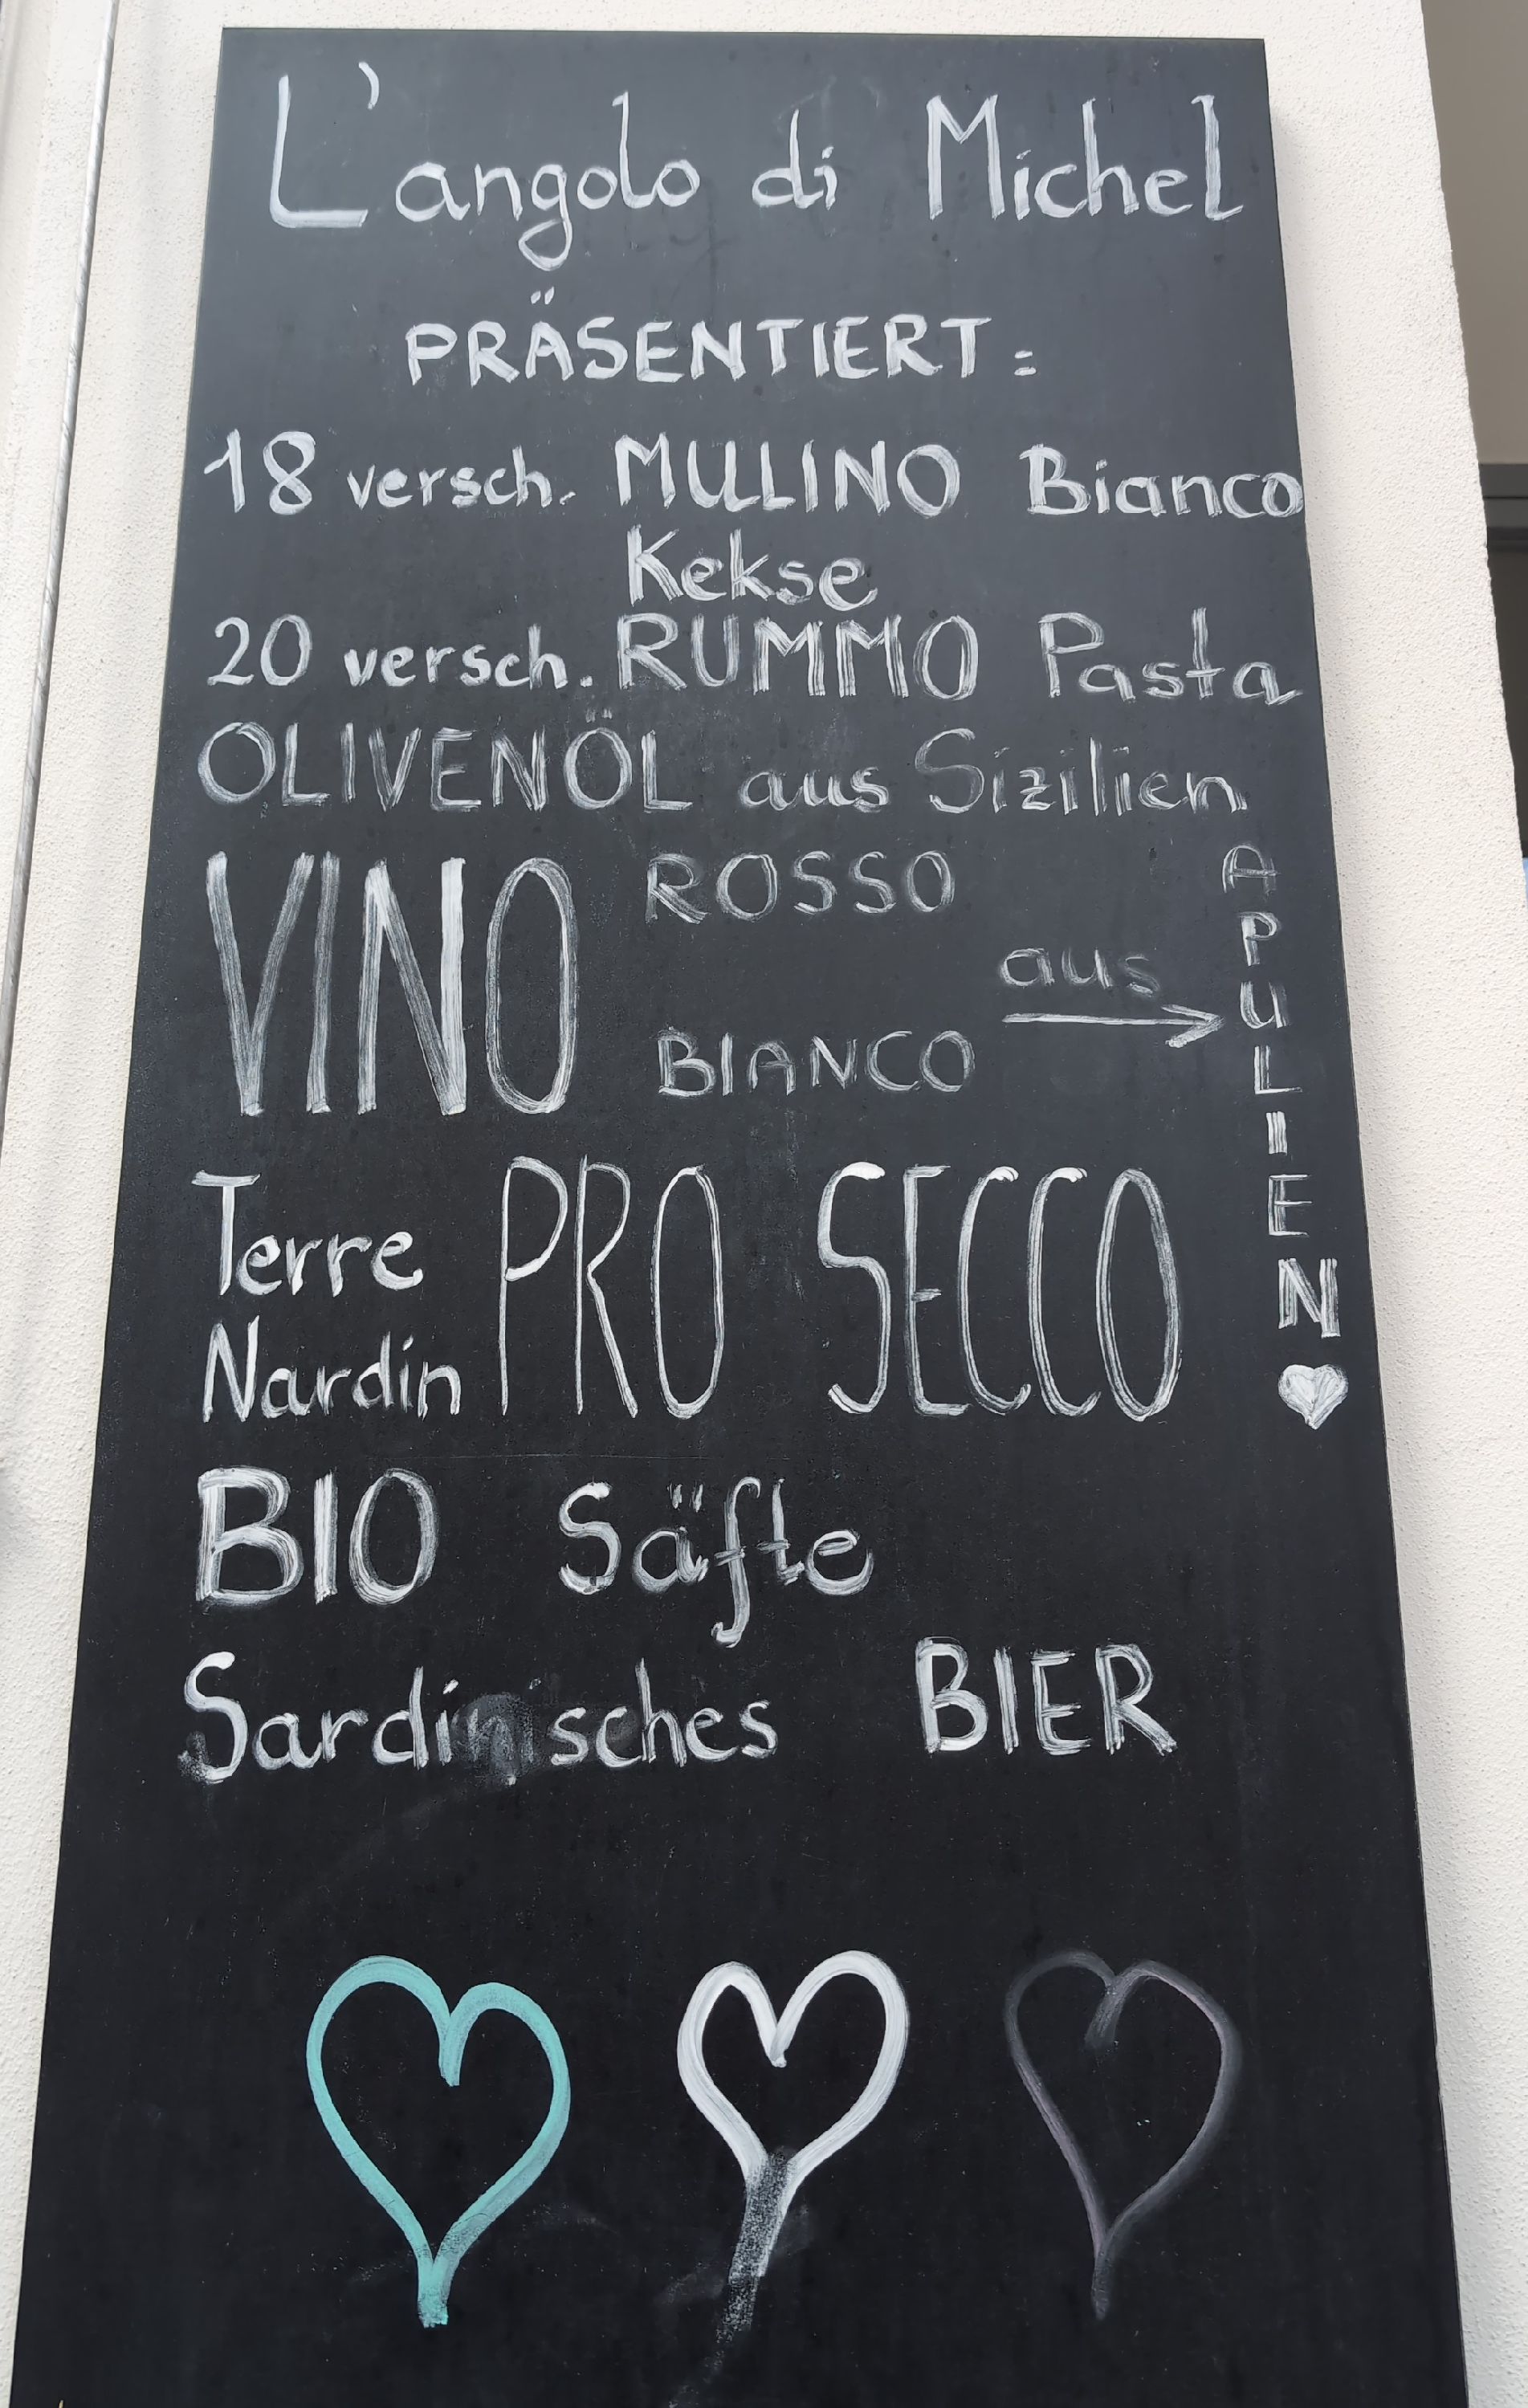 L'angolo di Michel
PRÄSENTIERT:
18 versch. MULINO Bianco
Kekse
20 versch. RUMMO Pasta
OLIVENÖL aus Sizilien
VINO ROSSO
BIANCO
aus
APULIEN
Terre
Nardin
PRO SECCO
BIO Säfte
Sardinisches BIER